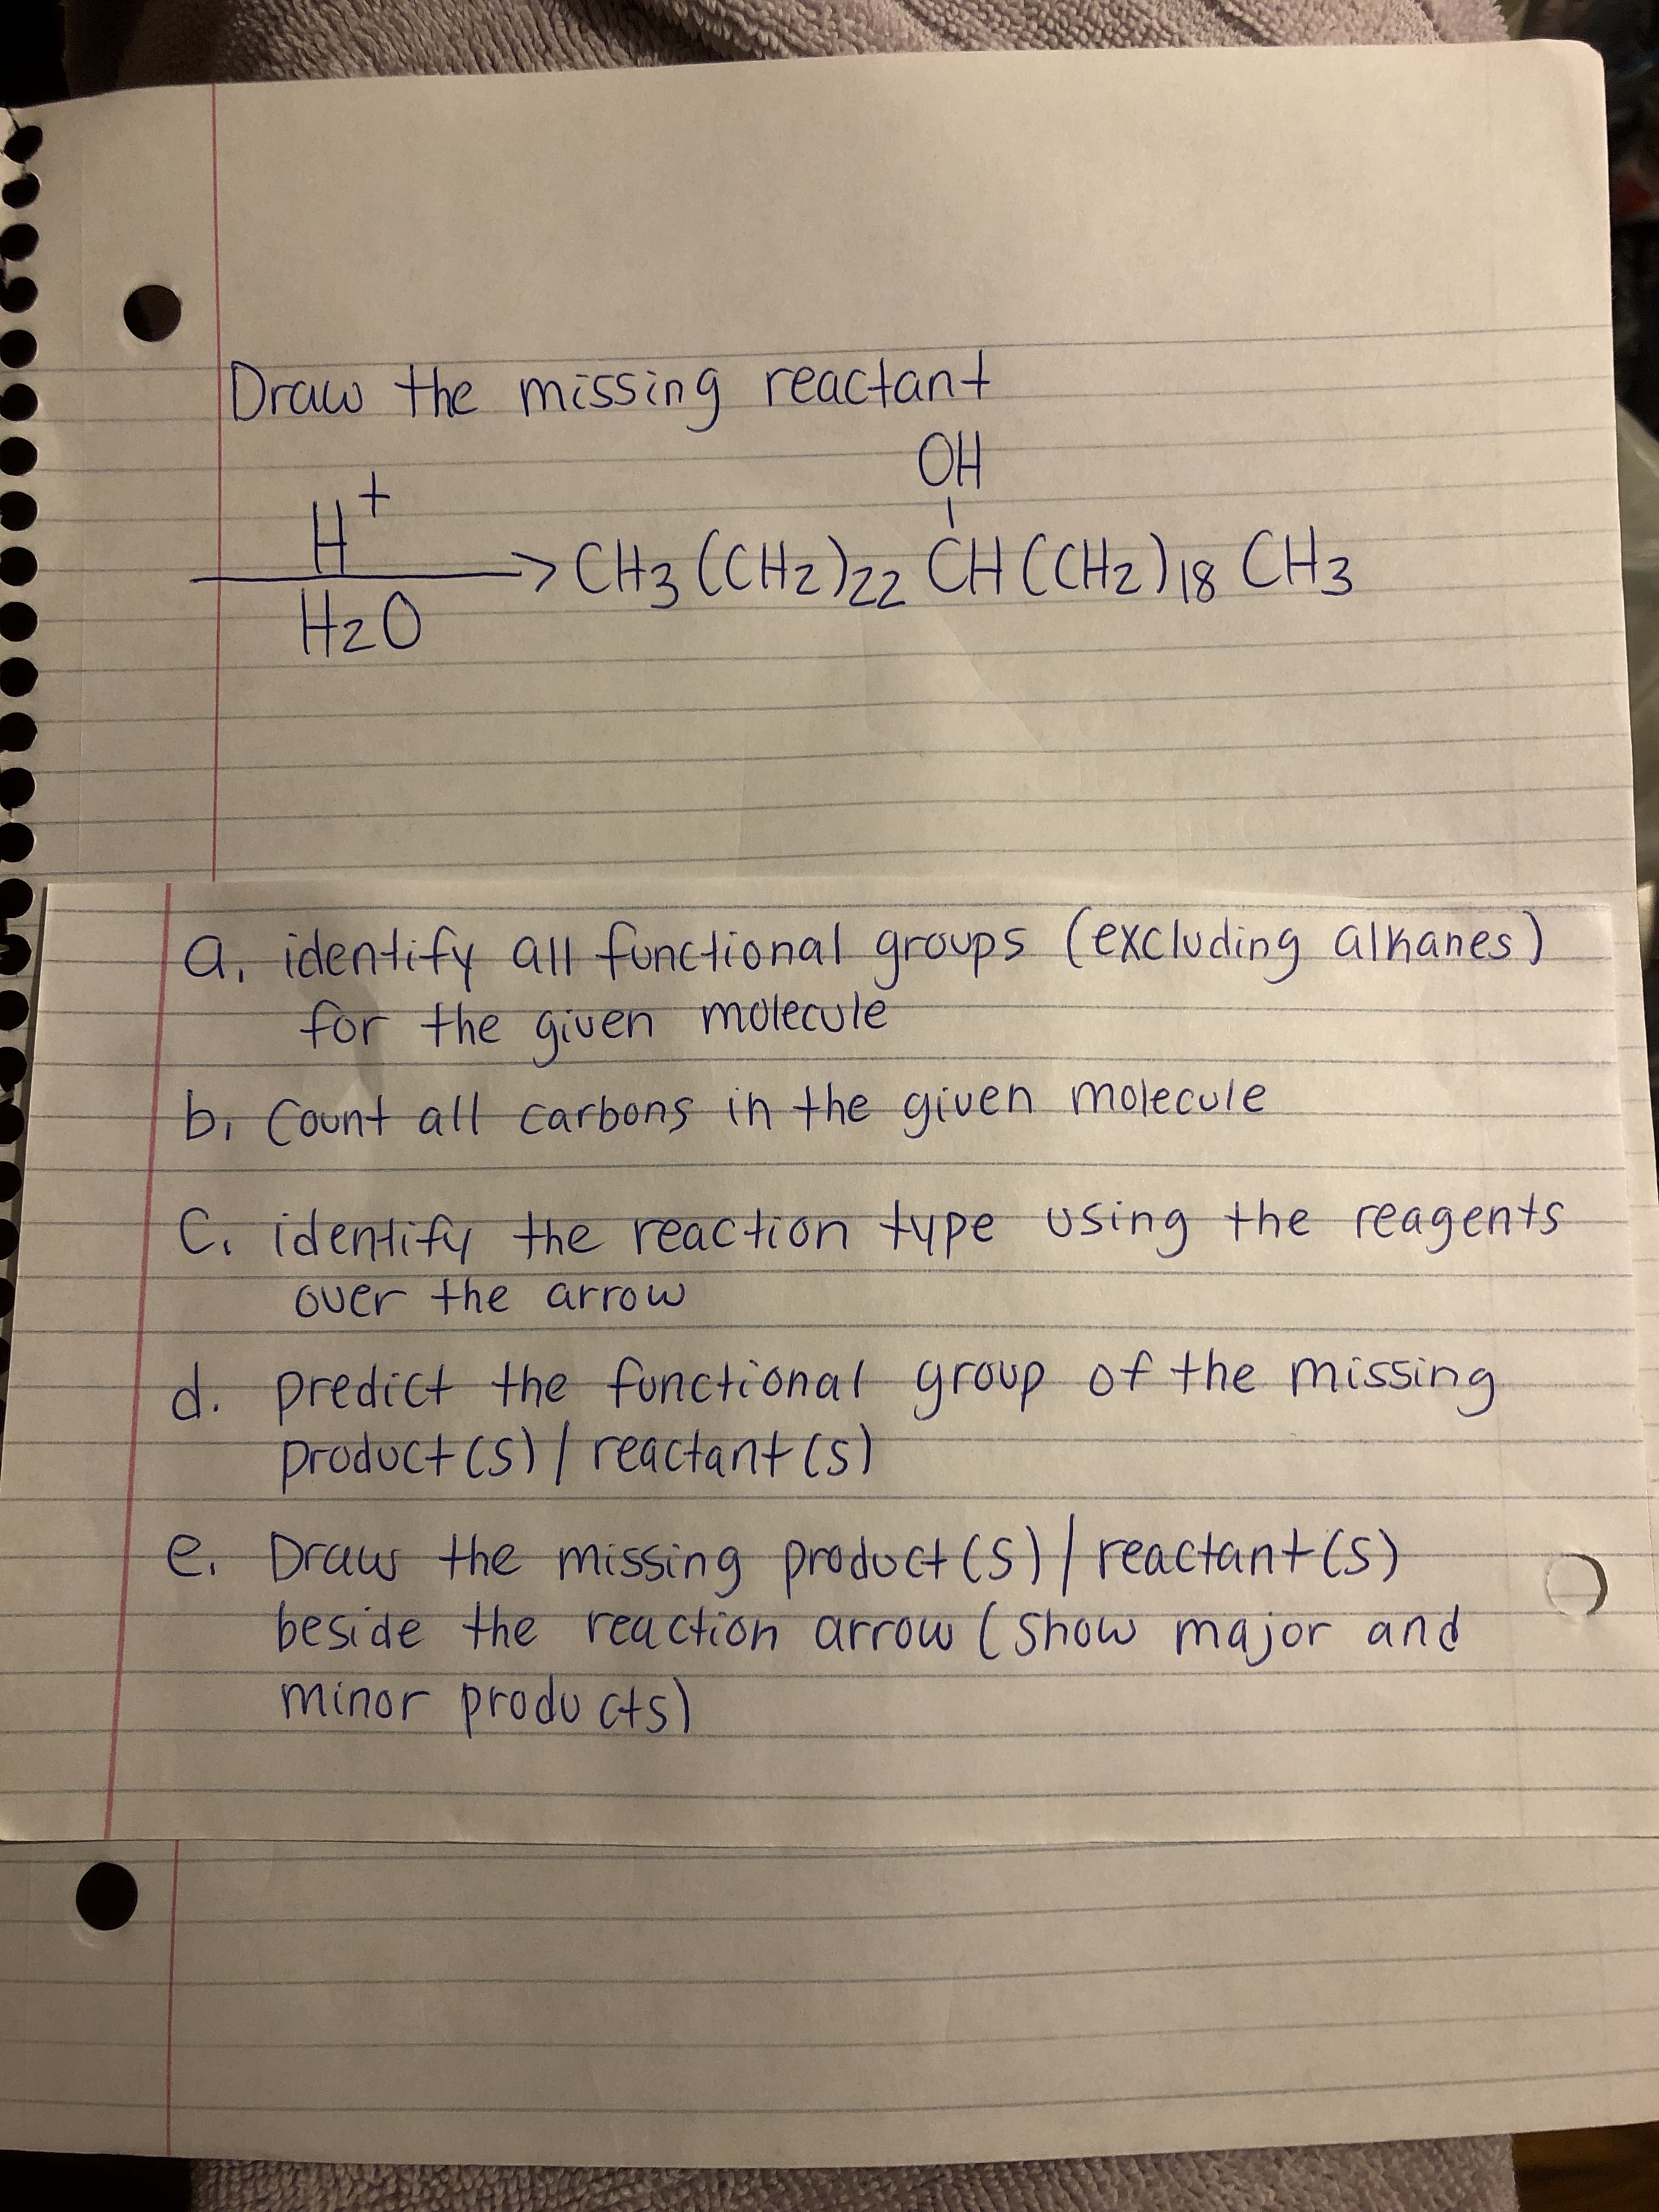 Draw the missing reactant
OH
H+
CH3(CH2)22 CH(CH2)18 CH3
H2O
a. identify all functional groups (excluding alkanes)
for the given molecule
b. Count all carbons in the given molecule
C. identify the reaction type using the reagents
over the arrow
d. predict the functional group of the missing
product(s)/reactant(s)
e. Draw the missing product(s)/reactant(s)
beside the reaction arrow (show major and
minor products)